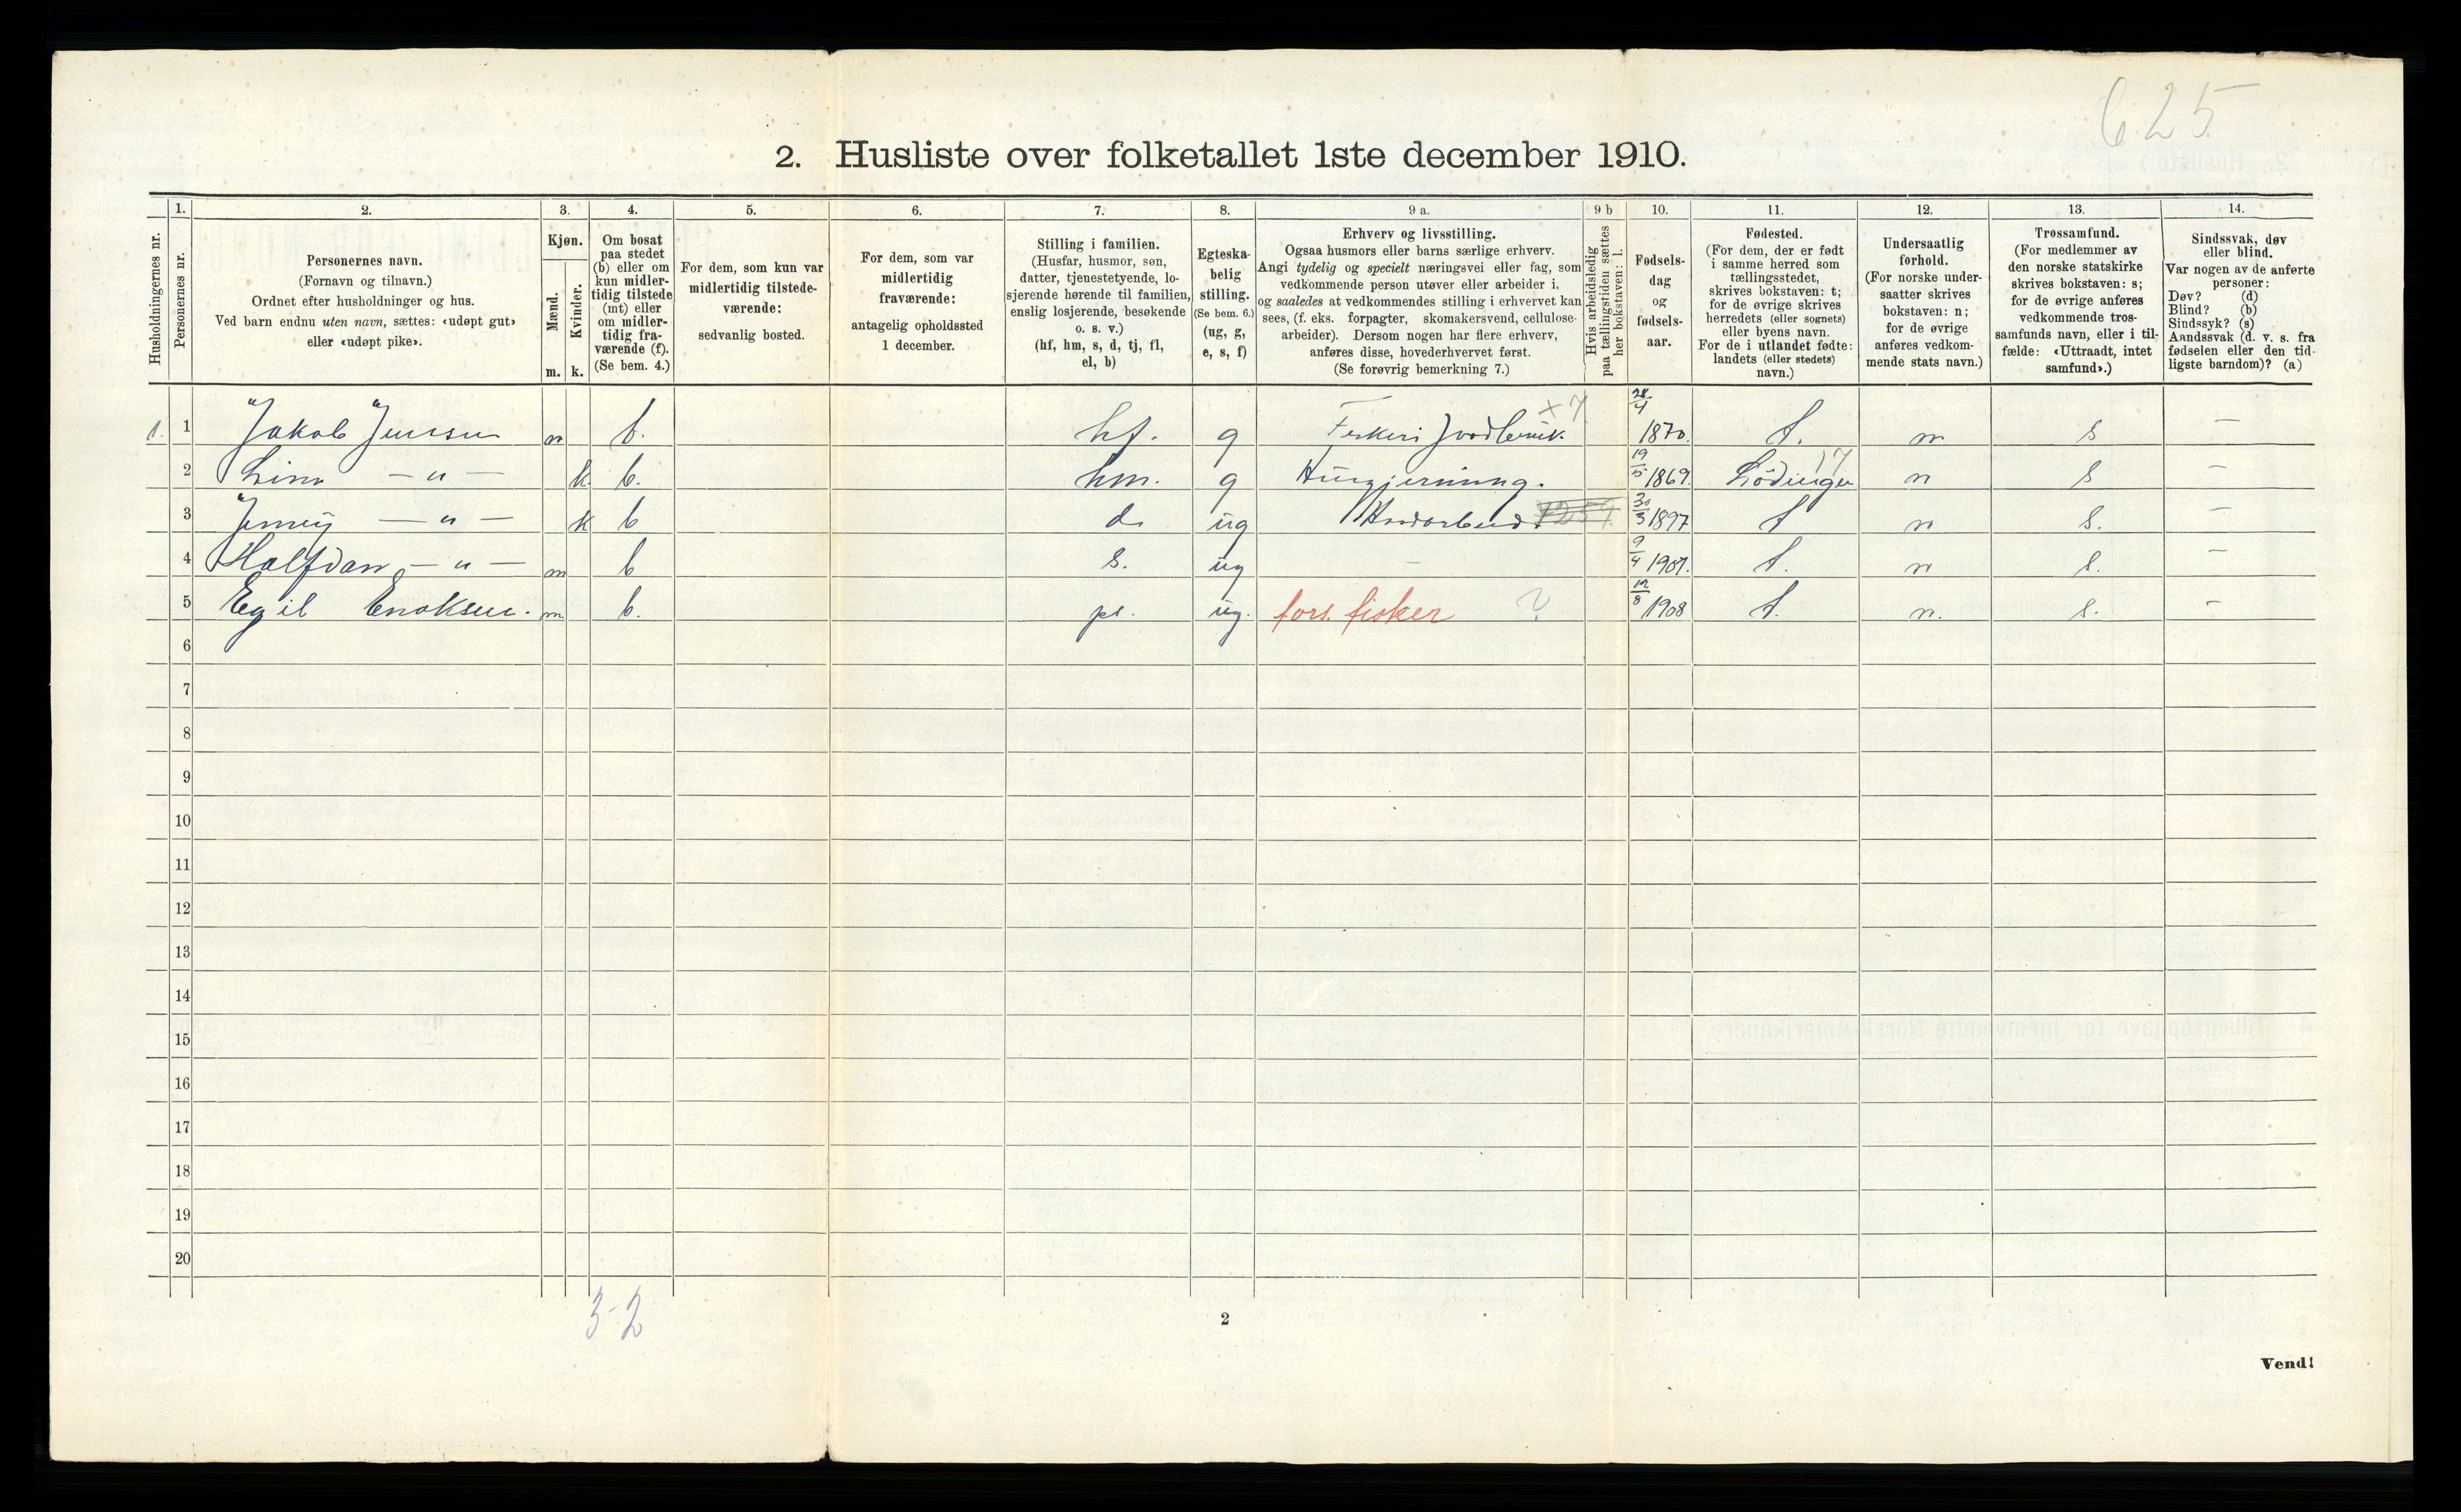 625
2. Husliste over folketallet 1ste december 1910.
Husholdningernes nr.
1.
Personernes nr.
2.
Personernes navn.
(Fornavn og tilnavn.)
Ordnet efter husholdninger og hus.
Ved barn endnu uten navn, sættes: «udøpt gut»
eller «udøpt pike».
3.
Kjøn.
Mænd.
Kvinder.
m. k.
4.
Om bosat
paa stedet
(b) eller om
kun midler-
tidig tilstede
(mt) eller
om midler-
tidig fra-
værende (f).
(Se bem. 4.)
5.
For dem, som kun var
midlertidig tilstede-
værende:
sedvanlig bosted.
6.
For dem, som var
midlertidig
fraværende:
antagelig opholdssted
1 december.
7.
Stilling i familien.
(Husfar, husmor, søn,
datter, tjenestetyende, lo-
sjerende hørende til familien,
enslig losjerende, besøkende
o. s. v.)
(hf, hm, s, d, tj, fl,
el, b)
8.
Egteska-
belig
stilling.
(Se bem. 6.)
(ug, g,
e, s, f)
9 a.
Erhverv og livsstilling.
Ogsaa husmors eller barns særlige erhverv.
Angi tydelig og specielt næringsvei eller fag, som
vedkommende person utøver eller arbeider i,
og saaledes at vedkommendes stilling i erhvervet kan
sees, (f. eks. forpagter, skomakersvend, cellulose-
arbeider). Dersom nogen har flere erhverv,
anføres disse, hovederhvervet først.
(Se forøvrig bemerkning 7.)
9 b
Hvis arbeidsledig
paa tællingstiden sættes
her bokstaven: l.
10.
Fødsels-
dag
og
fødsels-
aar.
11.
Fødested.
(For dem, der er født
i samme herred som
tællingsstedet,
skrives bokstaven: t;
for de øvrige skrives
herredets (eller sognets)
eller byens navn.
For de i utlandet fødte:
landets (eller stedets)
navn.)
12.
Undersaatlig
forhold.
(For norske under-
saatter skrives
bokstaven: n;
for de øvrige
anføres vedkom-
mende stats navn.)
13.
Trossamfund.
(For medlemmer av
den norske statskirke
skrives bokstaven: s;
for de øvrige anføres
vedkommende tros-
samfunds navn, eller i til-
fælde: «Uttraadt, intet
samfund».)
14.
Sindssvak, døv
eller blind.
Var nogen av de anførte
personer:
Døv? (d)
Blind? (b)
Sindssyk? (s)
Aandssvak (d. v. s. fra
fødselen eller den tid-
ligste barndom)? (a)
1. 1 Jakob Jenssen m b. hf. g x7 1870. t. n s —
2 Lina — „ — k. b. hm. g Husgjerning. 19/5 1869. Lödingen 17 n s —
3 Jenny — „ — k b d. ug 30/3 1897 t n s. —
4 Halfdan — „ — m b s. ug — 9/4 1901. t. n s. —
5 Egil Enoksen. m. b. ps. ug. fors. fisker ? 12/8 1908 t. n. s. —
6
7
8
9
10
11
12
13
14
15
16
17
18
19
20
3-2
2
Vend!